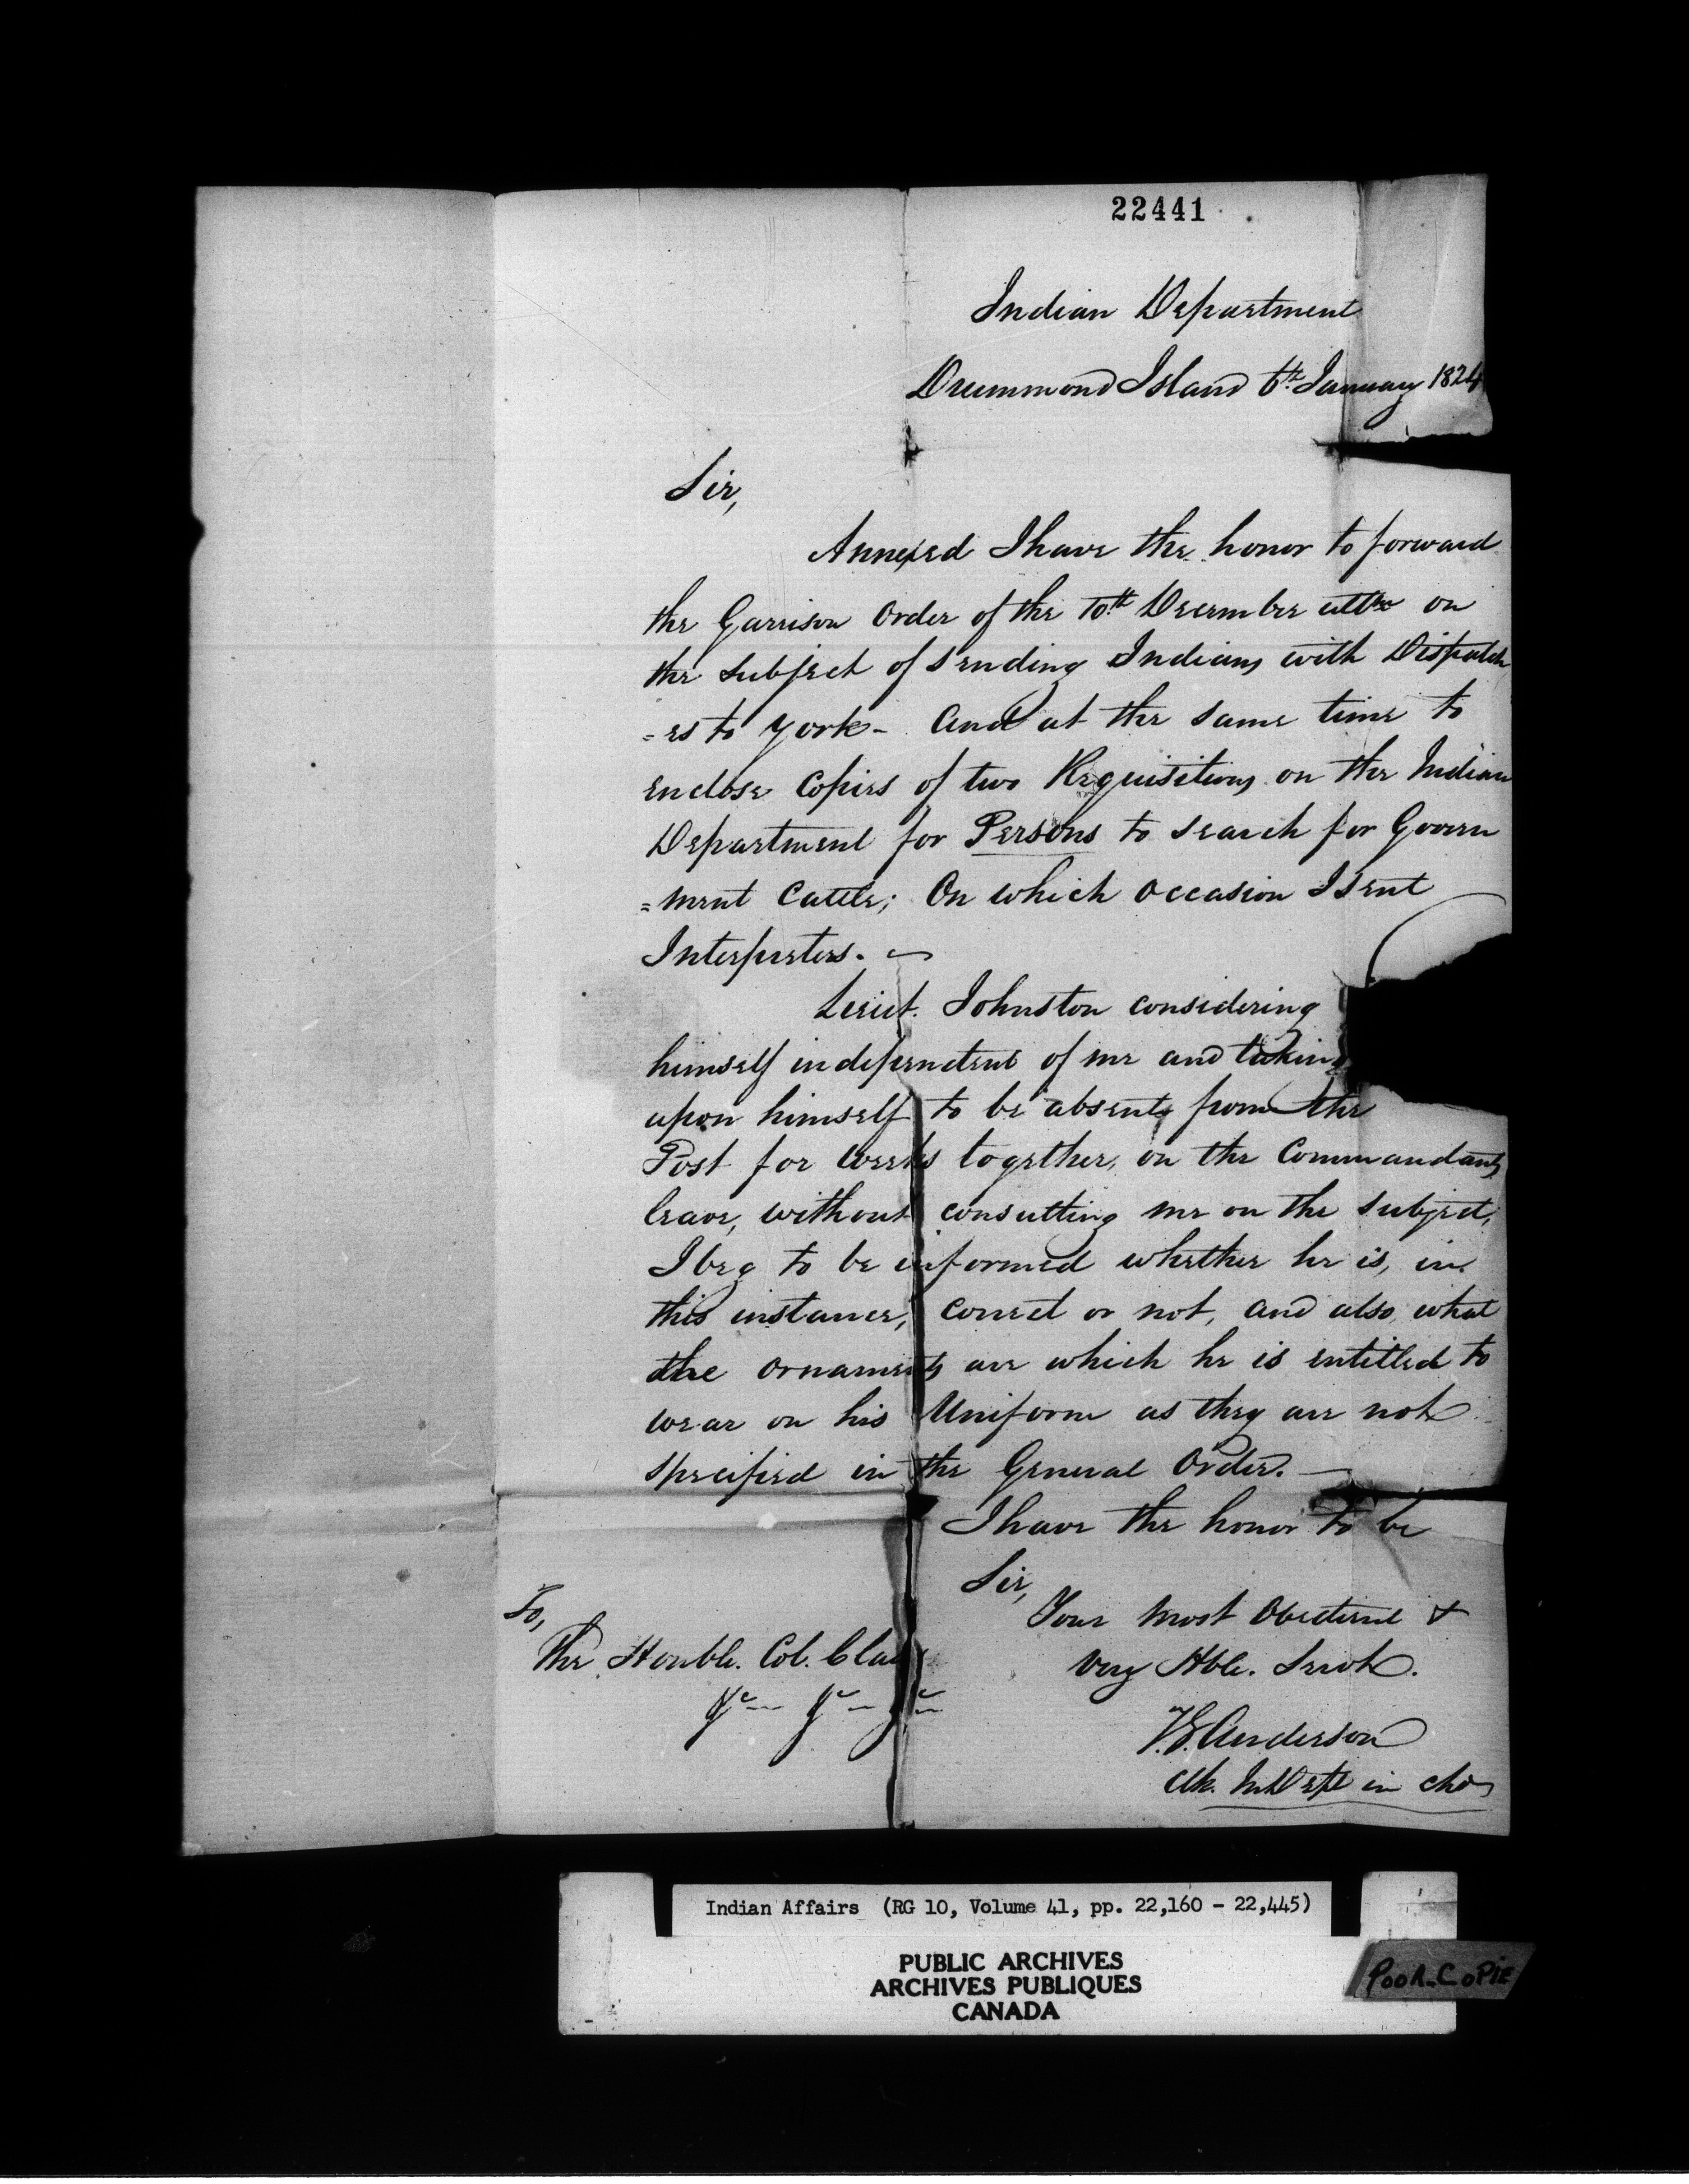 22441
Indian Department
Drummond Island 6th January 1824
Sir,
Annexed I have the honor to forward
the Garrison Order of the 10th December ulto on
the subject of sending Indians with Dispatch
=es to York - And at the same time to
enclose Copies of two Requisitions on the Indian
Department for Persons to search for Govern
=ment Cattle; On which occasion I sent
Interpreters. -
Lieut. Johnston considering
himself independent of me and taking
upon himself to be absent from the
Post for weeks together, on the Commandants
leave, without consulting me on the subject,
I beg to be informed whether he is, in
this instance, correct or not, and also, what
the ornaments are which he is entitled to
wear on his Uniform as they are not
specified in the General Order. -
I have the honor to be
Sir,
Your most Obedient &
Very Hble. Servt.
T.G. Anderson
Clk. In Dept in chg
To,
The Honble. Col. Claus
&c - &c - &c
Indian Affairs (RG 10, Volume 41, pp. 22,160 - 22,445)
PUBLIC ARCHIVES
ARCHIVES PUBLIQUES
CANADA
POOR_COPIE